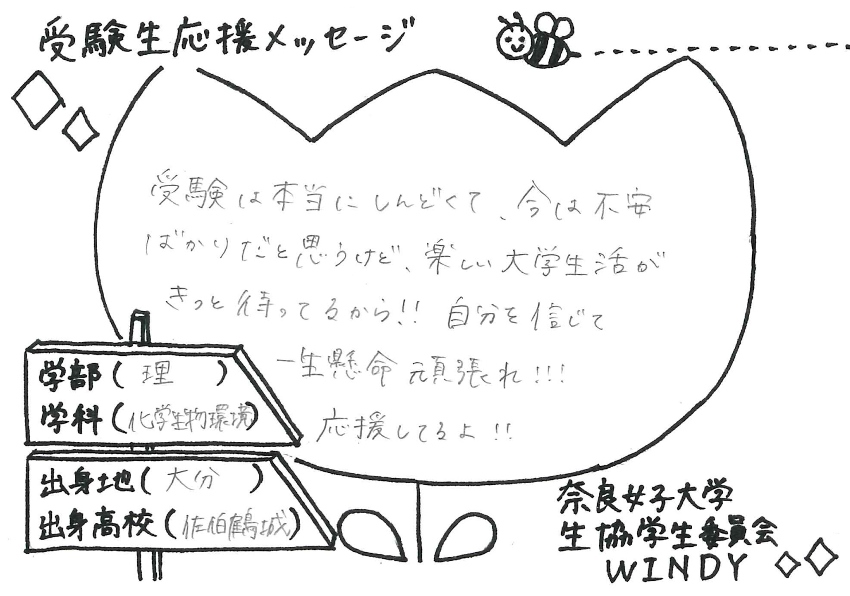 受験生応援メッセージ
受験は本当にしんどくて、今は不安
ばかりだと思うけど、楽しい大学生活が
きっと待ってるから!! 自分を信じて
一生懸命頑張れ!!!
応援してるよ!!
学部(理)
学科(化学生物環境)
出身地(大分)
出身高校(佐伯鶴城)
奈良女子大学
生協学生委員会
WINDY